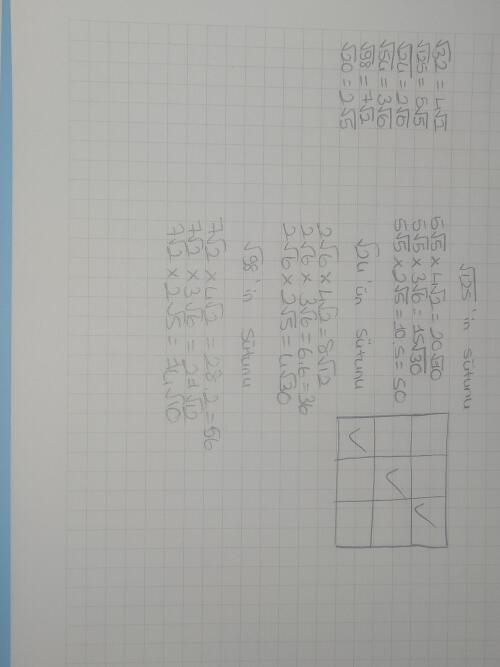 √32 = 4√2
√125 = 5√5
√24 = 2√6
√54 = 3√6
√98 = 7√2
√20 = 2√5
√125 'in sütunu
5√5 × 4√2 = 20√10
5√5 × 3√6 = 15√30
5√5 × 2√5 = 10.5 = 50
√24 'ün sütunu
2√6 × 4√2 = 8√12
2√6 × 3√6 = 6.6 = 36
2√6 × 2√5 = 4√30
√98 'in sütunu
7√2 × 4√2 = 28.2 = 56
7√2 × 3√6 = 21√12
7√2 × 2√5 = 14√10